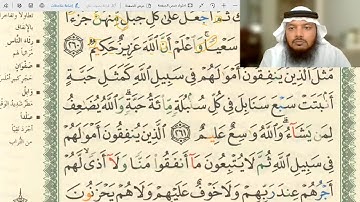 ثُمَّ ٱجْعَلْ عَلَىٰ كُلِّ جَبَلٍ مِّنْهُنَّ جُزْءًا
سَعْيًا ۚ وَٱعْلَمْ أَنَّ ٱللَّهَ عَزِيزٌ حَكِيمٌ ٢٦٠
مَّثَلُ ٱلَّذِينَ يُنفِقُونَ أَمْوَٰلَهُمْ فِي سَبِيلِ ٱللَّهِ كَمَثَلِ حَبَّةٍ
أَنۢبَتَتْ سَبْعَ سَنَابِلَ فِي كُلِّ سُنۢبُلَةٍ مِّا۟ئَةُ حَبَّةٍ ۗ وَٱللَّهُ يُضَٰعِفُ
لِمَن يَشَآءُ ۗ وَٱللَّهُ وَٰسِعٌ عَلِيمٌ ٢٦١ ٱلَّذِينَ يُنفِقُونَ أَمْوَٰلَهُمْ
فِي سَبِيلِ ٱللَّهِ ثُمَّ لَا يُتْبِعُونَ مَآ أَنفَقُوا۟ مَنًّا وَلَآ أَذًى ۙ لَّهُمْ
أَجْرُهُمْ عِندَ رَبِّهِمْ وَلَا خَوْفٌ عَلَيْهِمْ وَلَا هُمْ يَحْزَنُونَ
رئاء الناس
صفوان
وابل
صلدا